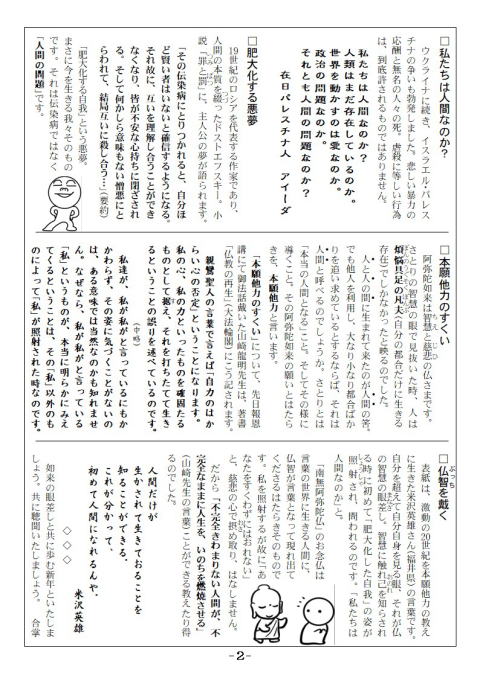 □私たちは人間なのか？
ウクライナに続き、イスラエル・パレス
チナの争いも勃発しました。悲しい暴力の
応酬と無名の人々の死。虐殺に等しい行為
は、到底許されるものではありません。
私たちは人間なのか？
人類はまだ存在しているのか。
世界を動かすのは愛なのか。
政治の問題なのか。
それとも人間の問題なのか？
在日パレスチナ人　アイーダ
□肥大化する悪夢
19世紀のロシアを代表する作家であり、
人間の本質を綴ったドストエフスキー。小
説『罪と罰』に、主人公の夢が語られます。
「その伝染病にとりつかれると、自分ほ
ど賢い者はいないと確信するようになる。
それ故に、互いを理解し合うことができ
なくなり、皆が不安な心持ちに閉ざされ
る。そして何かしら意味もない憎悪にと
らわれて、結局互いに殺し合う…」（要約）
「肥大化する自我」という悪夢。
まさに今を生きる我々そのもの
です。それは伝染病ではなく
「人間の問題」です。
□本願他力のすくい
阿弥陀如来は智慧と慈悲の仏さまです。
さとりの智慧の眼で見抜いた時、人は
煩悩具足の凡夫（自分の都合だけに生きる
存在）でしかなかったと映るのでした。
人と人の間に生まれて来たのが人間の筈。
でも他人を利用し、大なり小なり都合ばか
りを追い求めているとするならば、それは
人間と呼べるのでしょうか。さとりとは
「本当の人間となること」。そしてその様に
導くこと。その阿弥陀如来の願いとはたら
きを、本願他力と言います。
「本願他力のすくい」について、先日報恩
講にて御法話戴いた山崎龍明先生は、著書
『仏教の再生』（大法輪閣）にこう記されます。
親鸞聖人の言葉で言えば「自力のはか
らい心の否定」ということになります。
私の心、私の力といったものを確固たる
ものとして据え、それを打ちたてて生き
るということの誤りを述べているのです。
（中略）
私達が、私が私がと言っているにもか
かわらず、その姿に気づくことがないの
は、ある意味では当然なのかも知れませ
ん。なぜなら、私が私がと言っている
「私」というものが、本当に明らかにみえ
てくるということは、その「私」以外のも
のによって「私」が照射された時なのです。
□仏智を戴く
ぶっち
表紙は、激動の20世紀を本願他力の教え
に生きた米沢英雄さん（福井県）の言葉です。
自分を超えて自分自身を見る眼、それが仏
の智慧の眼差し。智慧に触れ己を知らされ
る時に初めて「肥大化した自我」の姿が
照射され、問われるのです。「私たちは
人間なのか」と。
「南無阿弥陀仏」のお念仏は
言葉の世界に生きる人間に、
仏智が言葉となって現れ出て
くださるはたらきそのもので
す。私を照射するが故に「あ
なたをすくわずにはおれない」
と、慈悲の心で摂め取り、はなしません。
だから「不完全きわまりない人間が、不
完全なままに人生を、いのちを燃焼させる」
（山崎先生の言葉）ことができる教えたり得
るのでした。
人間だけが
生かされて生きておることを
知ることができる。
これが分かって、
初めて人間になれるんや。
米沢英雄
◇　◇　◇
如来の眼差しと共に歩む新年といたしま
しょう。共に聴聞いたしましょう。　合掌
- 2 -